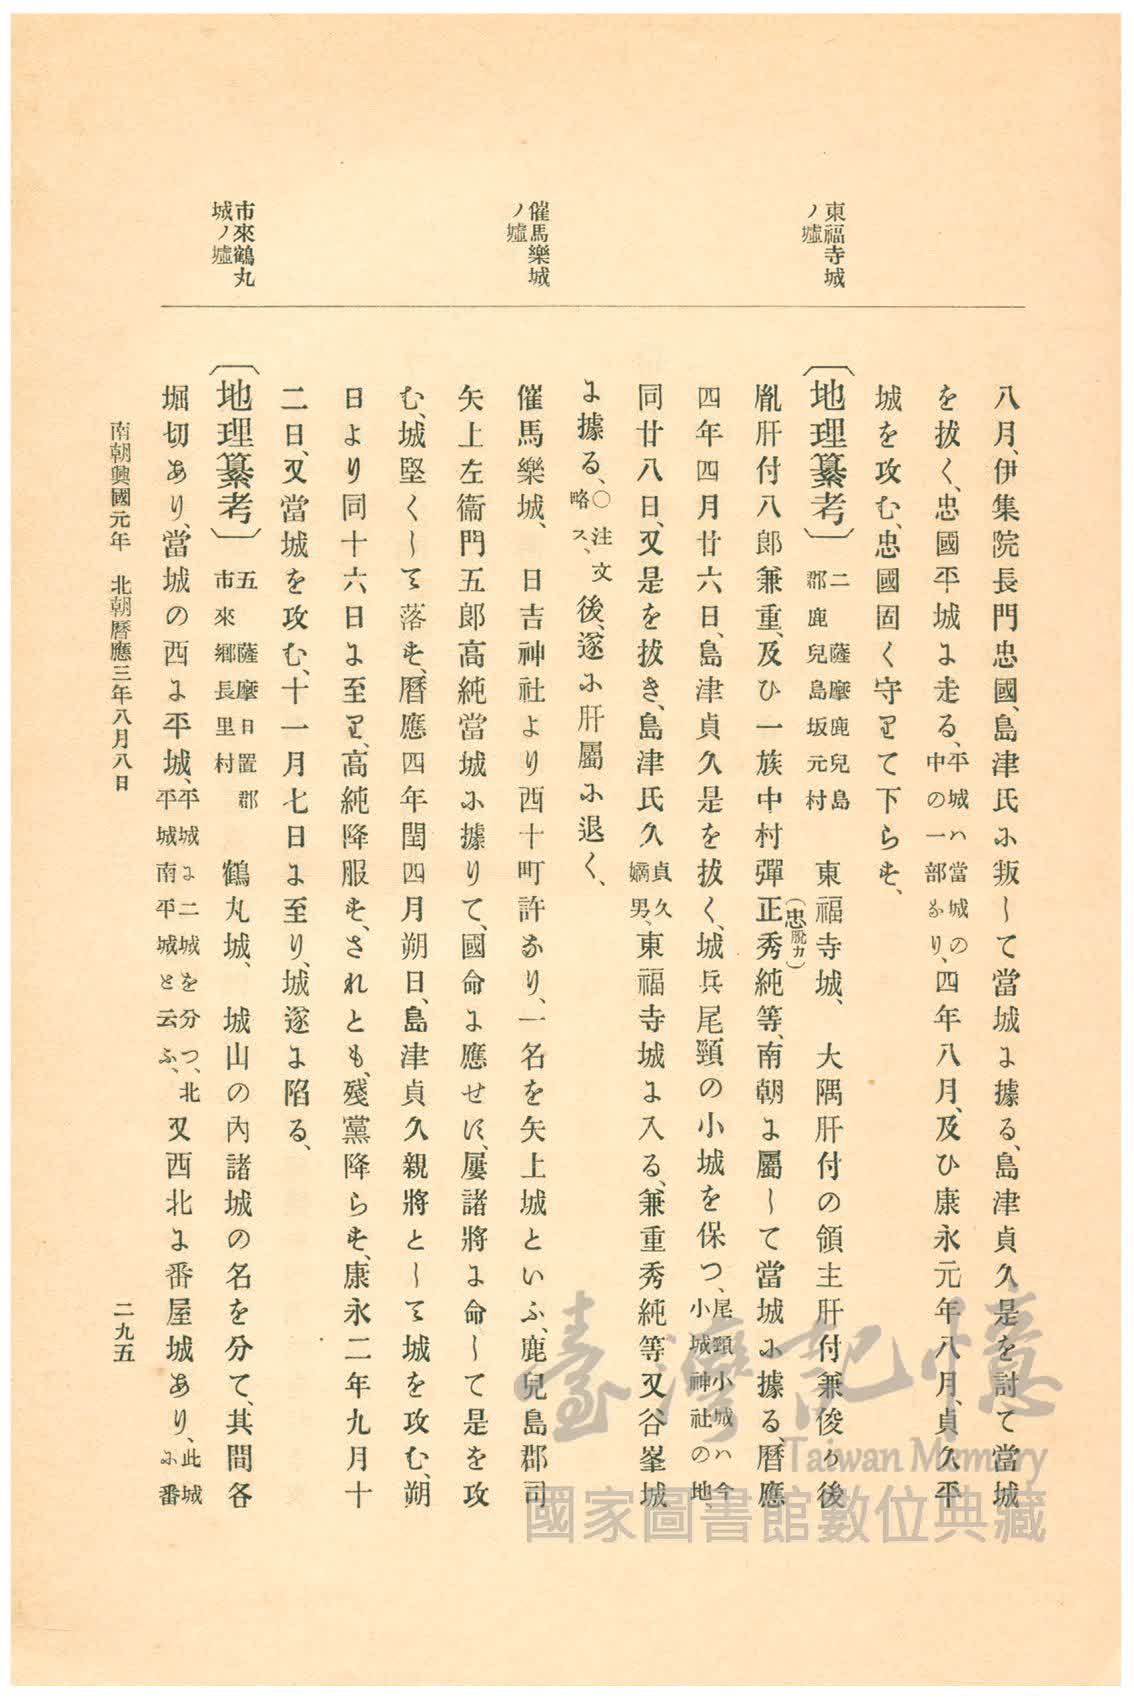 東福寺城
ノ墟
催馬樂城
ノ墟
市來鶴丸
城ノ墟
八月、伊集院長門忠國、島津氏に叛して當城に據る、島津貞久是を討て當城
を抜く、忠國平城に走る、平城ハ當城の中の一部なり、四年八月、及ひ康永元年八月、貞久平
城を攻む、忠國固く守りて下らす、
〔地理纂考〕二 薩摩鹿兒島郡鹿兒島坂元村 東福寺城、 大隅肝付の領主肝付兼俊か後
胤肝付八郎兼重、及ひ一族中村彈正秀純等、(忠脱カ)南朝に屬して當城に據る、曆應
四年四月廿六日、島津貞久是を拔く、城兵尾頸の小城を保つ、尾頸小城ハ今小城神社の地、
同廿八日、又是を拔き、島津氏久貞久嫡男、東福寺城に入る、兼重秀純等又谷峯城
に據る、〇注文略ス、後、遂に肝屬に退く、
催馬樂城、 日吉神社より西十町許なり、一名を矢上城といふ、鹿兒島郡司
矢上左衞門五郎高純當城に據りて、國命に應せす、屢諸將に命して是を攻
む、城堅くして落す、曆應四年閏四月朔日、島津貞久親將として城を攻む、朔
日より同十六日に至り、高純降服す、されとも、殘黨降らす、康永二年九月十
二日、又當城を攻む、十一月七日に至り、城遂に陷る、
〔地理纂考〕五 薩摩日置郡市來鄕長里村 鶴丸城、 城山の內諸城の名を分て、其間各
堀切あり、當城の西に平城、平城に二城を分つ、北平城南平城と云ふ、又西北に番屋城あり、此城に番
南朝興國元年 北朝曆應三年八月八日
二九五
臺灣記憶
Taiwan Memory
國家圖書館數位典藏